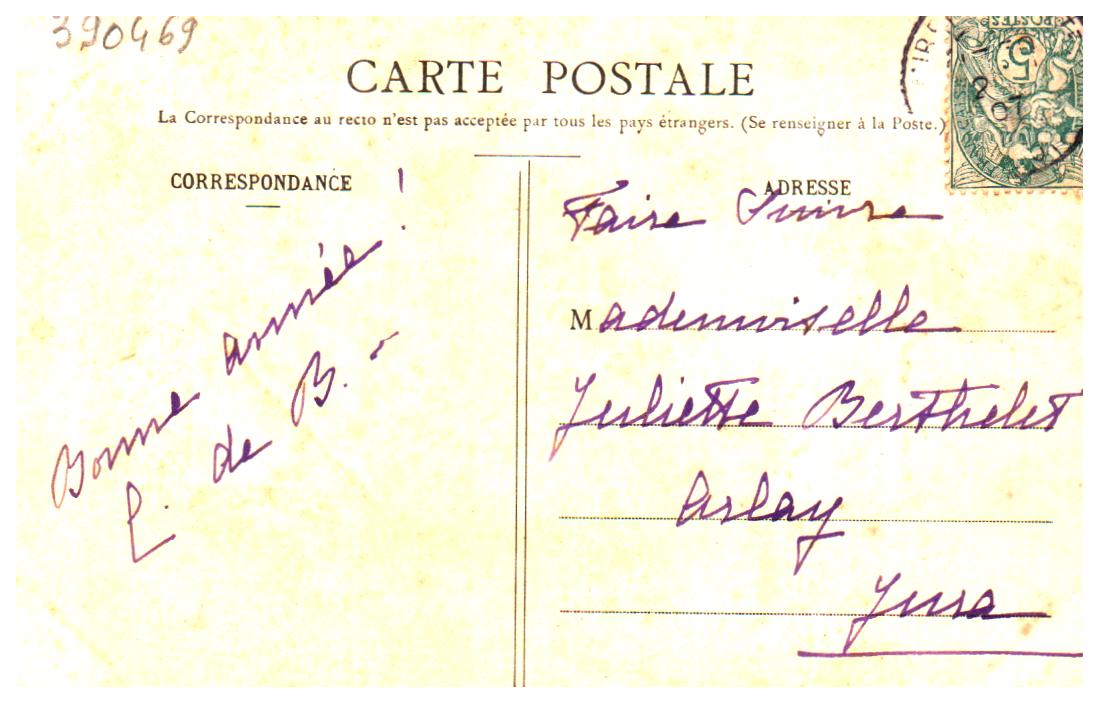 390469
CARTE POSTALE
La Correspondance au recto n'est pas acceptée par tous les pays étrangers. (Se renseigner à la Poste.)
CORRESPONDANCE
Bonne année !
L. de B. -
ADRESSE
Faire Suivre
Mademoiselle
Juliette Berthelet
Arlay
Jura
POSTES
5
2
07